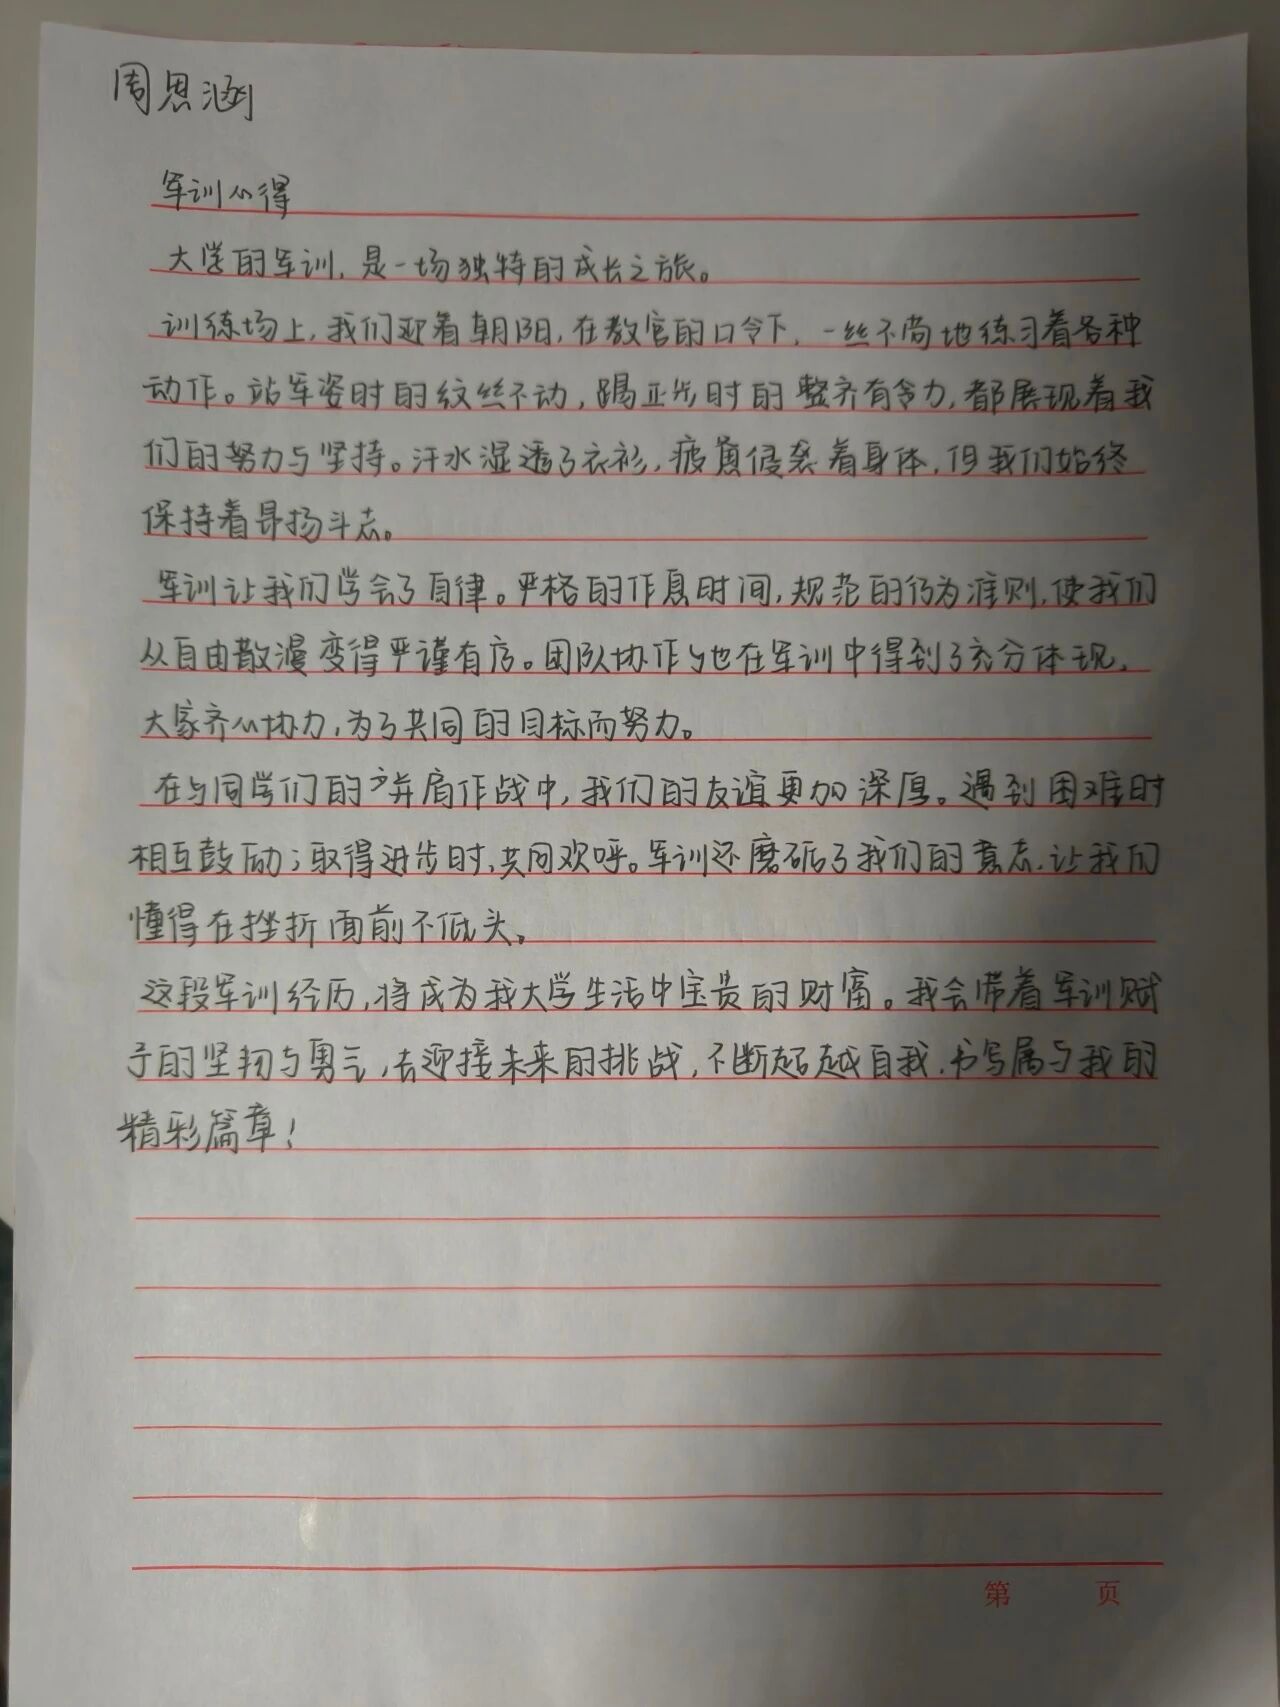 周思涵
军训心得
大学的军训，是一场独特的成长之旅。
训练场上，我们迎着朝阳，在教官的口令下，一丝不苟地练习着各种
动作。站军姿时的纹丝不动，踢正步时的整齐有力，都展现着我
们的努力与坚持。汗水湿透了衣衫，疲惫侵袭着身体，但我们始终
保持着昂扬斗志。
军训让我们学会了自律。严格的作息时间，规范的行为准则，使我们
从自由散漫变得严谨有序。团队协作也在军训中得到了充分体现，
大家齐心协力，为了共同的目标而努力。
在与同学们的并肩作战中，我们的友谊更加深厚。遇到困难时
相互鼓励；取得进步时，共同欢呼。军训还磨砺了我们的意志，让我们
懂得在挫折面前不低头。
这段军训经历，将成为我大学生活中宝贵的财富。我会带着军训赋
予的坚韧与勇气，去迎接未来的挑战，不断超越自我，书写属与我的
精彩篇章！
第 页